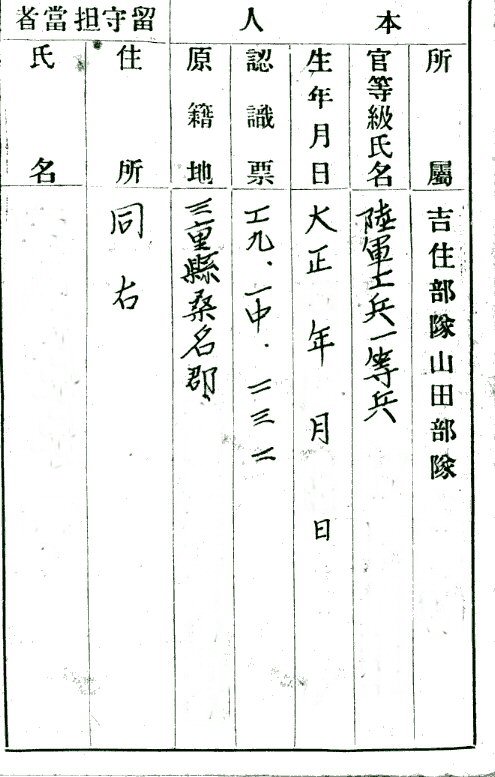 本人
所屬
吉住部隊山田部隊
官等級氏名
陸軍工兵一等兵
生年月日
大正 年 月 日
認識票
工九、一中.二三二
原籍地
三重縣桑名郡
留守担當者
住所
同右
氏名